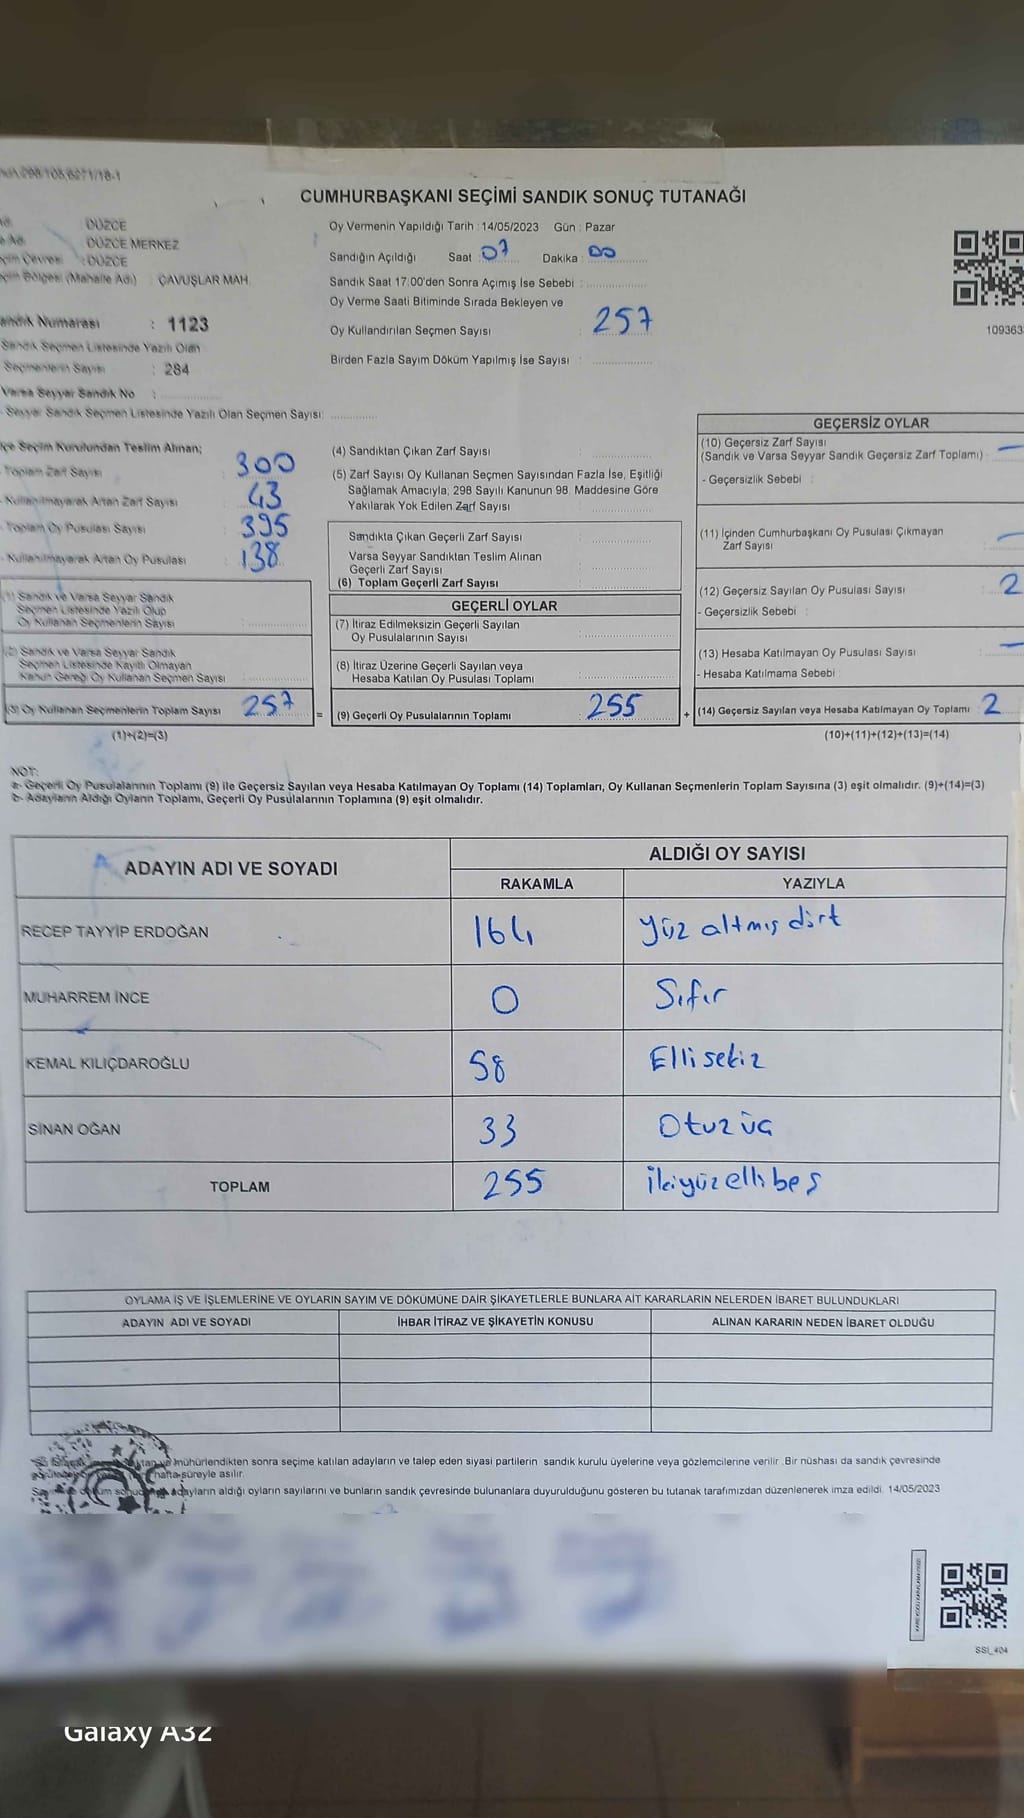 298/105,6271/18-1
CUMHURBAŞKANI SEÇİMİ SANDIK SONUÇ TUTANAĞI
: DÜZCE
: DÜZCE MERKEZ
: DÜZCE
(Mahalle Adı) : ÇAVUŞLAR MAH.
Sandık Numarası : 1123
Sandık Seçmen Listesinde Yazılı Olan
Seçmenlerin Sayısı : 284
Varsa Seyyar Sandık No :
- Seyyar Sandık Seçmen Listesinde Yazılı Olan Seçmen Sayısı:
Oy Vermenin Yapıldığı Tarih : 14/05/2023 Gün : Pazar
Sandığın Açıldığı Saat : 07 Dakika : 00
Sandık Saat 17:00'den Sonra Açımış İse Sebebi :
Oy Verme Saati Bitiminde Sırada Bekleyen ve
Oy Kullandırılan Seçmen Sayısı : 257
Birden Fazla Sayım Döküm Yapılmış İse Sayısı :
109363
Seçim Kurulundan Teslim Alınan;
- Toplam Zarf Sayısı : 300
- Kullanılmayarak Artan Zarf Sayısı : 43
- Toplam Oy Pusulası Sayısı : 395
- Kullanılmayarak Artan Oy Pusulası : 138
(1) Sandık ve Varsa Seyyar Sandık
Seçmen Listesinde Yazılı Olup
Oy Kullanan Seçmenlerin Sayısı :
(2) Sandık ve Varsa Seyyar Sandık
Seçmen Listesinde Kayıtlı Olmayan
Kanun Gereği Oy Kullanan Seçmen Sayısı :
(3) Oy Kullanan Seçmenlerin Toplam Sayısı 257
(1)+(2)=(3)
(4) Sandıktan Çıkan Zarf Sayısı :
(5) Zarf Sayısı Oy Kullanan Seçmen Sayısından Fazla İse, Eşitliği
Sağlamak Amacıyla, 298 Sayılı Kanunun 98. Maddesine Göre
Yakılarak Yok Edilen Zarf Sayısı :
Sandıkta Çıkan Geçerli Zarf Sayısı :
Varsa Seyyar Sandıktan Teslim Alınan
Geçerli Zarf Sayısı :
(6) Toplam Geçerli Zarf Sayısı :
GEÇERLİ OYLAR
(7) İtiraz Edilmeksizin Geçerli Sayılan
Oy Pusulalarının Sayısı :
(8) İtiraz Üzerine Geçerli Sayılan veya
Hesaba Katılan Oy Pusulası Toplamı :
= (9) Geçerli Oy Pusulalarının Toplamı : 255
GEÇERSİZ OYLAR
(10) Geçersiz Zarf Sayısı
(Sandık ve Varsa Seyyar Sandık Geçersiz Zarf Toplamı) : —
- Geçersizlik Sebebi :
(11) İçinden Cumhurbaşkanı Oy Pusulası Çıkmayan
Zarf Sayısı : —
(12) Geçersiz Sayılan Oy Pusulası Sayısı : 2
- Geçersizlik Sebebi :
(13) Hesaba Katılmayan Oy Pusulası Sayısı : —
- Hesaba Katılmama Sebebi :
+ (14) Geçersiz Sayılan veya Hesaba Katılmayan Oy Toplamı : 2
(10)+(11)+(12)+(13)=(14)
NOT:
a- Geçerli Oy Pusulalarının Toplamı (9) ile Geçersiz Sayılan veya Hesaba Katılmayan Oy Toplamı (14) Toplamları, Oy Kullanan Seçmenlerin Toplam Sayısına (3) eşit olmalıdır. (9)+(14)=(3)
b- Adayların Aldığı Oyların Toplamı, Geçerli Oy Pusulalarının Toplamına (9) eşit olmalıdır.
ADAYIN ADI VE SOYADI ALDIĞI OY SAYISI
RAKAMLA YAZIYLA
RECEP TAYYİP ERDOĞAN 164 yüz altmış dört
MUHARREM İNCE 0 Sıfır
KEMAL KILIÇDAROĞLU 58 Elli sekiz
SİNAN OĞAN 33 Otuz üç
TOPLAM 255 ikiyüzellibeş
OYLAMA İŞ VE İŞLEMLERİNE VE OYLARIN SAYIM VE DÖKÜMÜNE DAİR ŞİKAYETLERLE BUNLARA AİT KARARLARIN NELERDEN İBARET BULUNDUKLARI
ADAYIN ADI VE SOYADI İHBAR İTİRAZ VE ŞİKAYETİN KONUSU ALINAN KARARIN NEDEN İBARET OLDUĞU
mühürlendikten sonra seçime katılan adayların ve talep eden siyasi partilerin sandık kurulu üyelerine veya gözlemcilerine verilir. Bir nüshası da sandık çevresinde
hafta süreyle asılır.
adayların aldığı oyların sayılarını ve bunların sandık çevresinde bulunanlara duyurulduğunu gösteren bu tutanak tarafımızdan düzenlenerek imza edildi. 14/05/2023
SSI_404
Galaxy A32